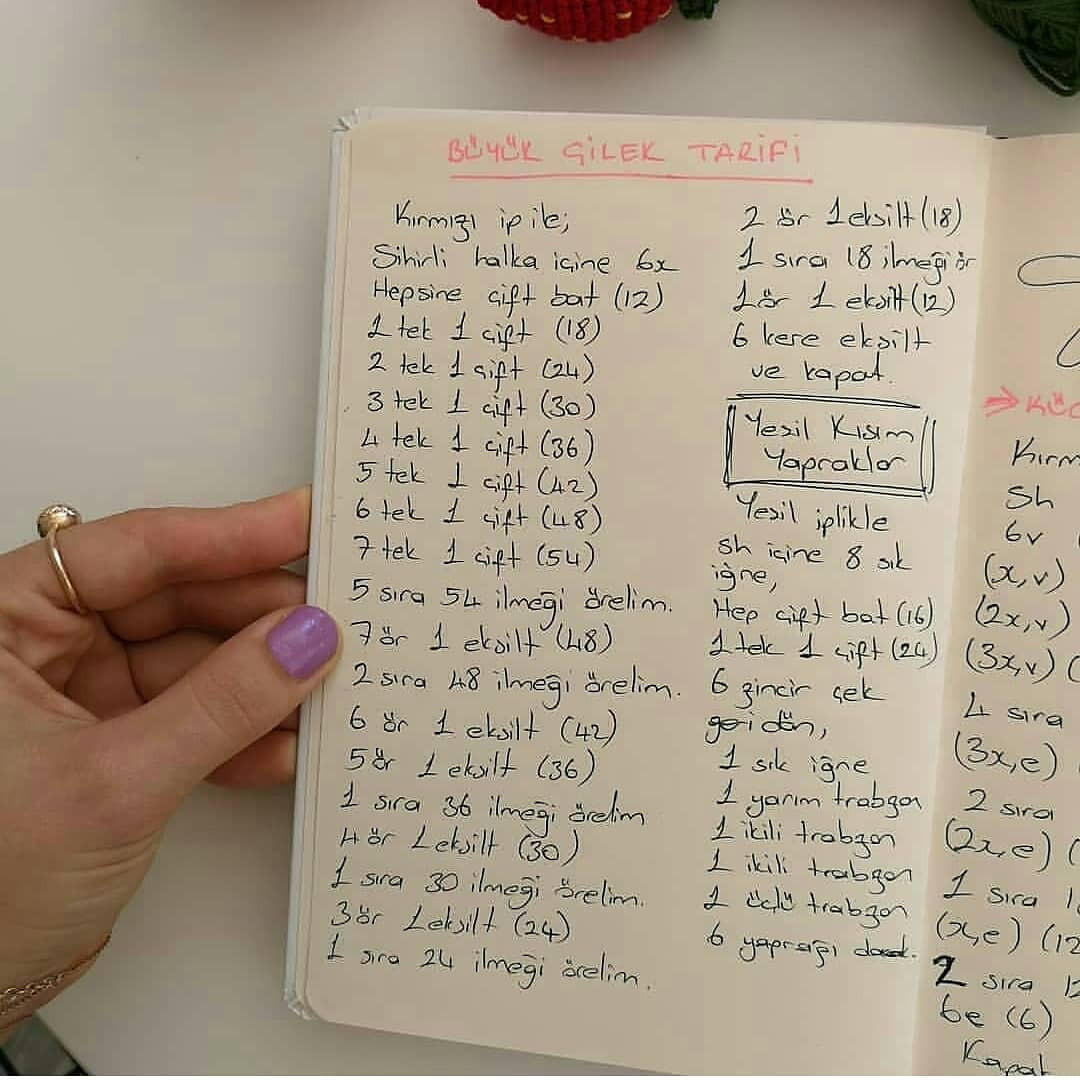 BÜYÜK ÇİLEK TARİFİ
Kırmızı ip ile;
Sihirli halka içine 6x
Hepsine çift bat (12)
1 tek 1 çift (18)
2 tek 1 çift (24)
3 tek 1 çift (30)
4 tek 1 çift (36)
5 tek 1 çift (42)
6 tek 1 çift (48)
7 tek 1 çift (54)
5 sıra 54 ilmeği örelim.
7 ör 1 eksilt (48)
2 sıra 48 ilmeği örelim.
6 ör 1 eksilt (42)
5 ör 1 eksilt (36)
1 sıra 36 ilmeği örelim
4 ör 1 eksilt (30)
1 sıra 30 ilmeği örelim.
3 ör 1 eksilt (24)
1 sıra 24 ilmeği örelim.
2 ör 1 eksilt (18)
1 sıra 18 ilmeği ör
1 ör 1 eksilt (12)
6 kere eksilt
ve kapat.
Yeşil Kısım
Yapraklar
Yeşil iplikle
sh içine 8 sık
iğne,
Hep çift bat (16)
1 tek 1 çift (24)
6 zincir çek
geri dön,
1 sık iğne
1 yarım trabzan
1 ikili trabzan
1 ikili trabzan
1 üçlü trabzan
6 yaprağı
Sh
6v
(x,v)
(2x,v)
(3x,v) (
4 sıra
(3x,e)
2 sıra
(2x,e) (
1 sıra
(x,e) (12
2 sıra 12
6e (6)
Kapat